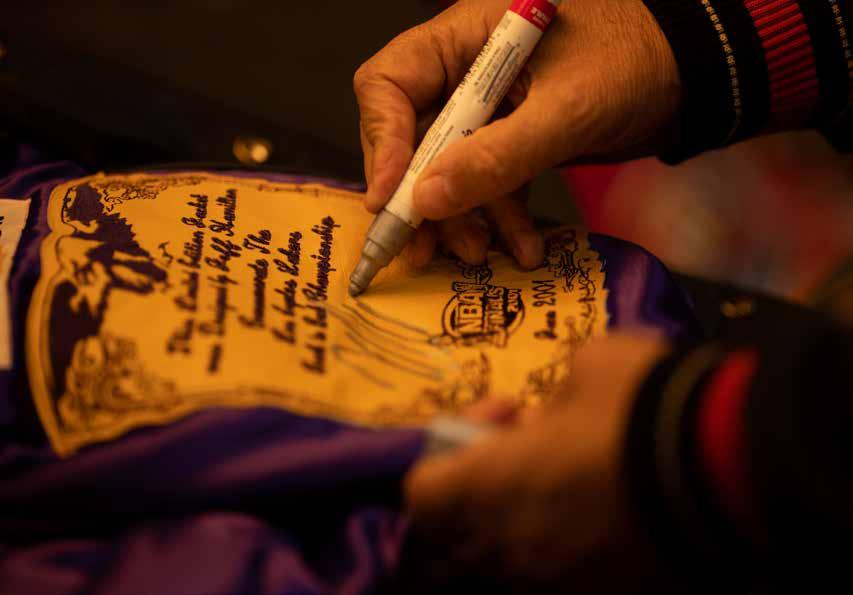 This Limited Edition Jacket
was Designed by Jeff Hamilton
Commemorate The
Los Angeles Lakers
Back to Back Championship
NBA
FINALS
2001
June 2001